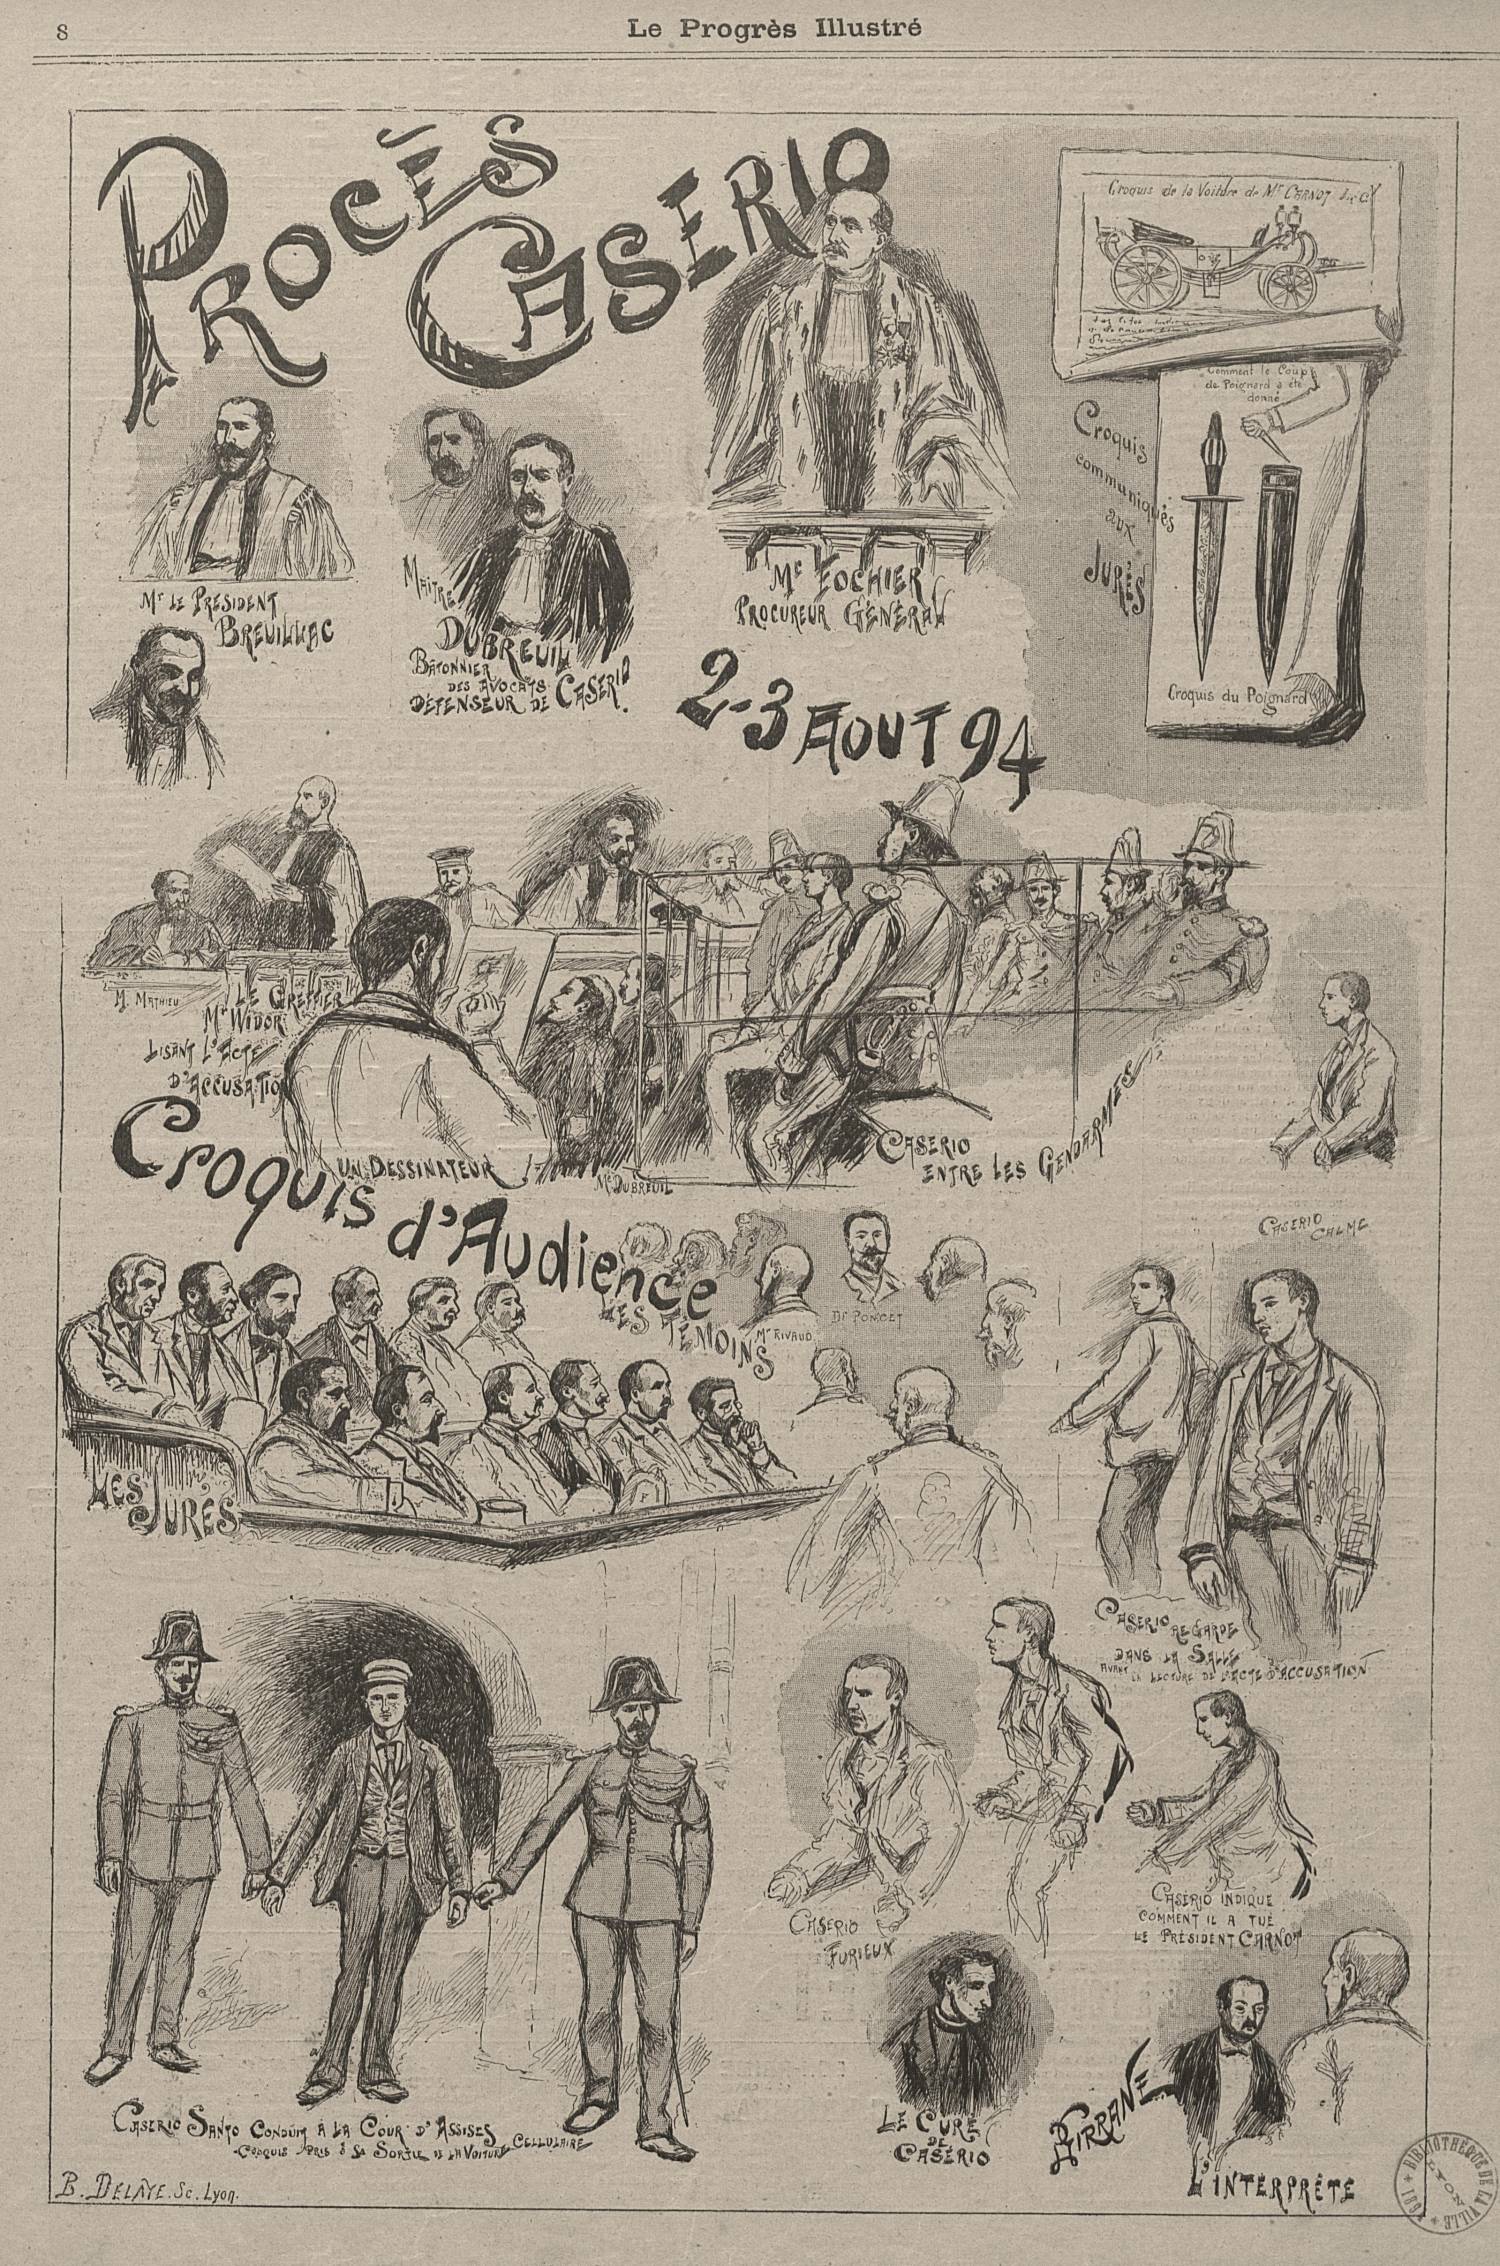 8
Le Progrès Illustré
PROCÈS
CASERIO
Croquis de la Voiture de Mr CARNOT
Comment le Coup
de Poignard a été
donné
Croquis
communiqués
aux
JURÉS
Croquis du Poignard
Mr LE PRÉSIDENT
BREUILLAC
MAITRE
DUBREUIL
BATONNIER
DES AVOCATS
DÉFENSEUR DE CASERIO.
Mc FOCHIER
PROCUREUR GÉNÉRAL
2-3 AOUT 94
M. MATHIEU
LE GREFFIER
Mr WIDOR
LISANT L'ACTE
D'ACCUSATION
UN DESSINATEUR
Mc DUBREUIL
CASERIO
ENTRE LES GENDARMES
Croquis d'Audience
CASERIO
CALME
LES TÉMOINS
Mr RIVAUD
Dr PONCET
LES JURÉS
CASERIO REGARDE
DANS LA SALLE
AVANT LA LECTURE DE L'ACTE D'ACCUSATION
CASERIO
FURIEUX
CASERIO INDIQUE
COMMENT IL A TUÉ
LE PRÉSIDENT CARNOT
CASERIO SANTO CONDUIT À LA COUR D'ASSISES
CROQUIS PRIS À SA SORTIE DE LA VOITURE CELLULAIRE
LE CURÉ
DE
CASÉRIO
GIRRANE
L'INTERPRÈTE
B. DELAYE. Sc. Lyon.
BIBLIOTHÈQUE DE LA VILLE
LYON
1891